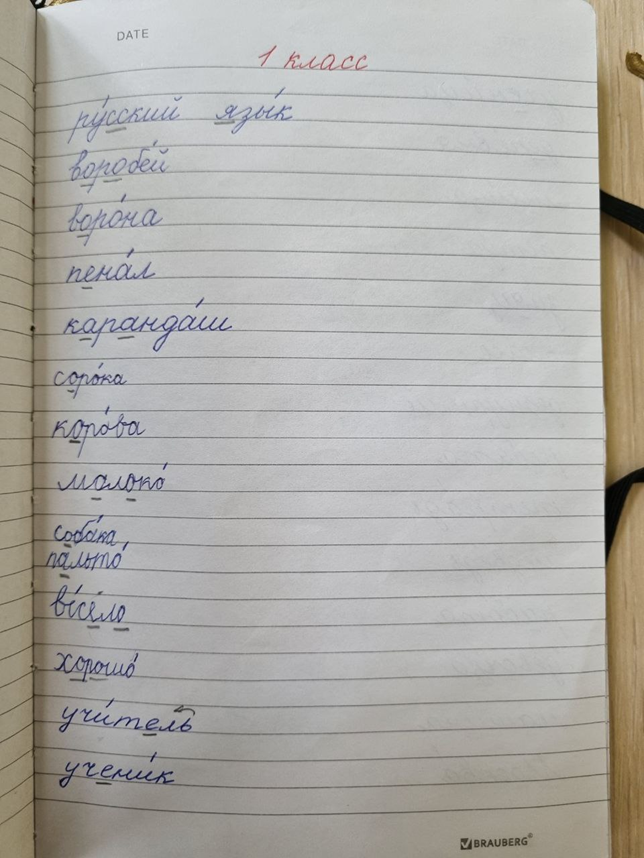 DATE
1 класс
ру́сский язы́к
воробе́й
воро́на
пена́л
каранда́ш
соро́ка
коро́ва
малоко́
соба́ка
пальто́
ве́село
хорошо́
учи́тель
учени́к
BRAUBERG®